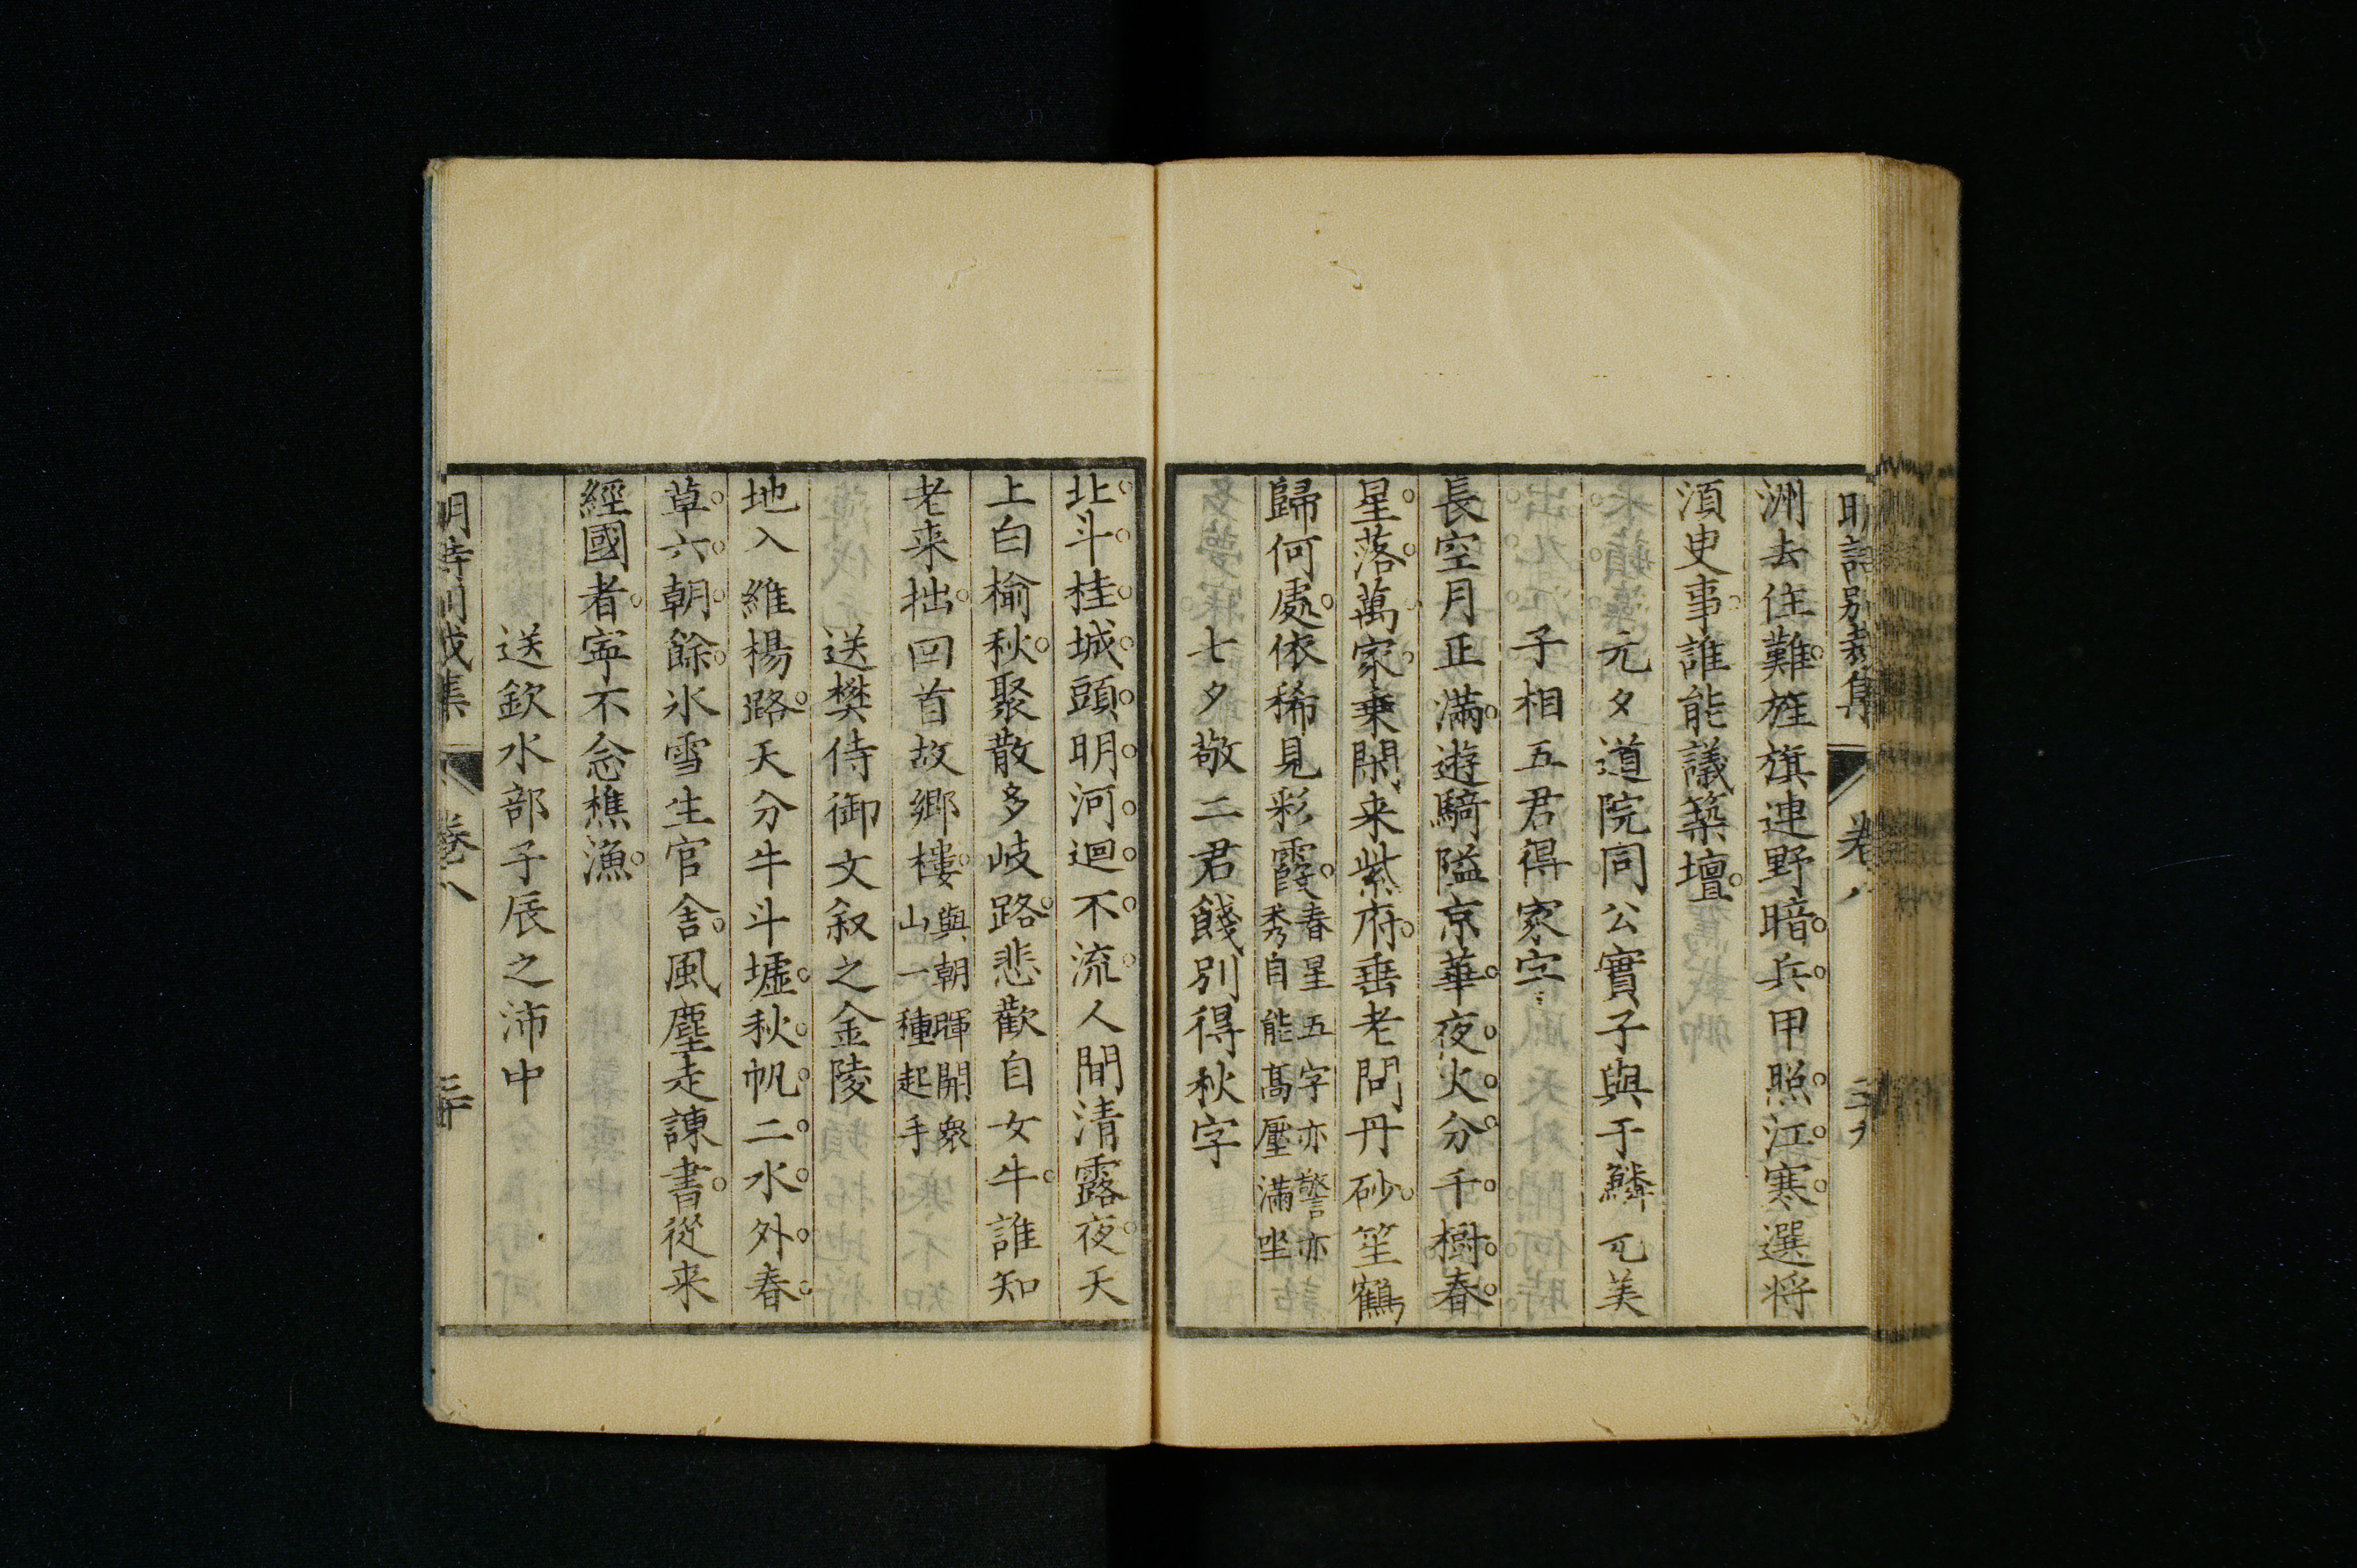 明詩別裁集 卷八
洲去住難旌旗連野暗兵甲照江寒選將
湏史事誰能議築壇
元夕道院同公實子與于鱗元美
子相五君得家字
長空月正滿遊騎隘京華夜火分千樹春
星落萬家乗閑来紫府垂老問丹砂笙鶴
歸何處依稀見彩霞春星五字亦警亦
秀自能高壓滿坐
七夕敬二君餞別得秋字
北斗桂城頭明河迴不流人間清露夜天
上白榆秋聚散多岐路悲歡自女牛誰知
老来拙回首故鄉樓與朝暉開衆
山一種起手
送樊侍御文叙之金陵
地入維楊路天分牛斗墟秋帆二水外春
草六朝餘氷雪生官舍風塵走諫書從来
經國者寜不念樵漁
送欽水部子辰之沛中
明詩別裁集 卷八 三十